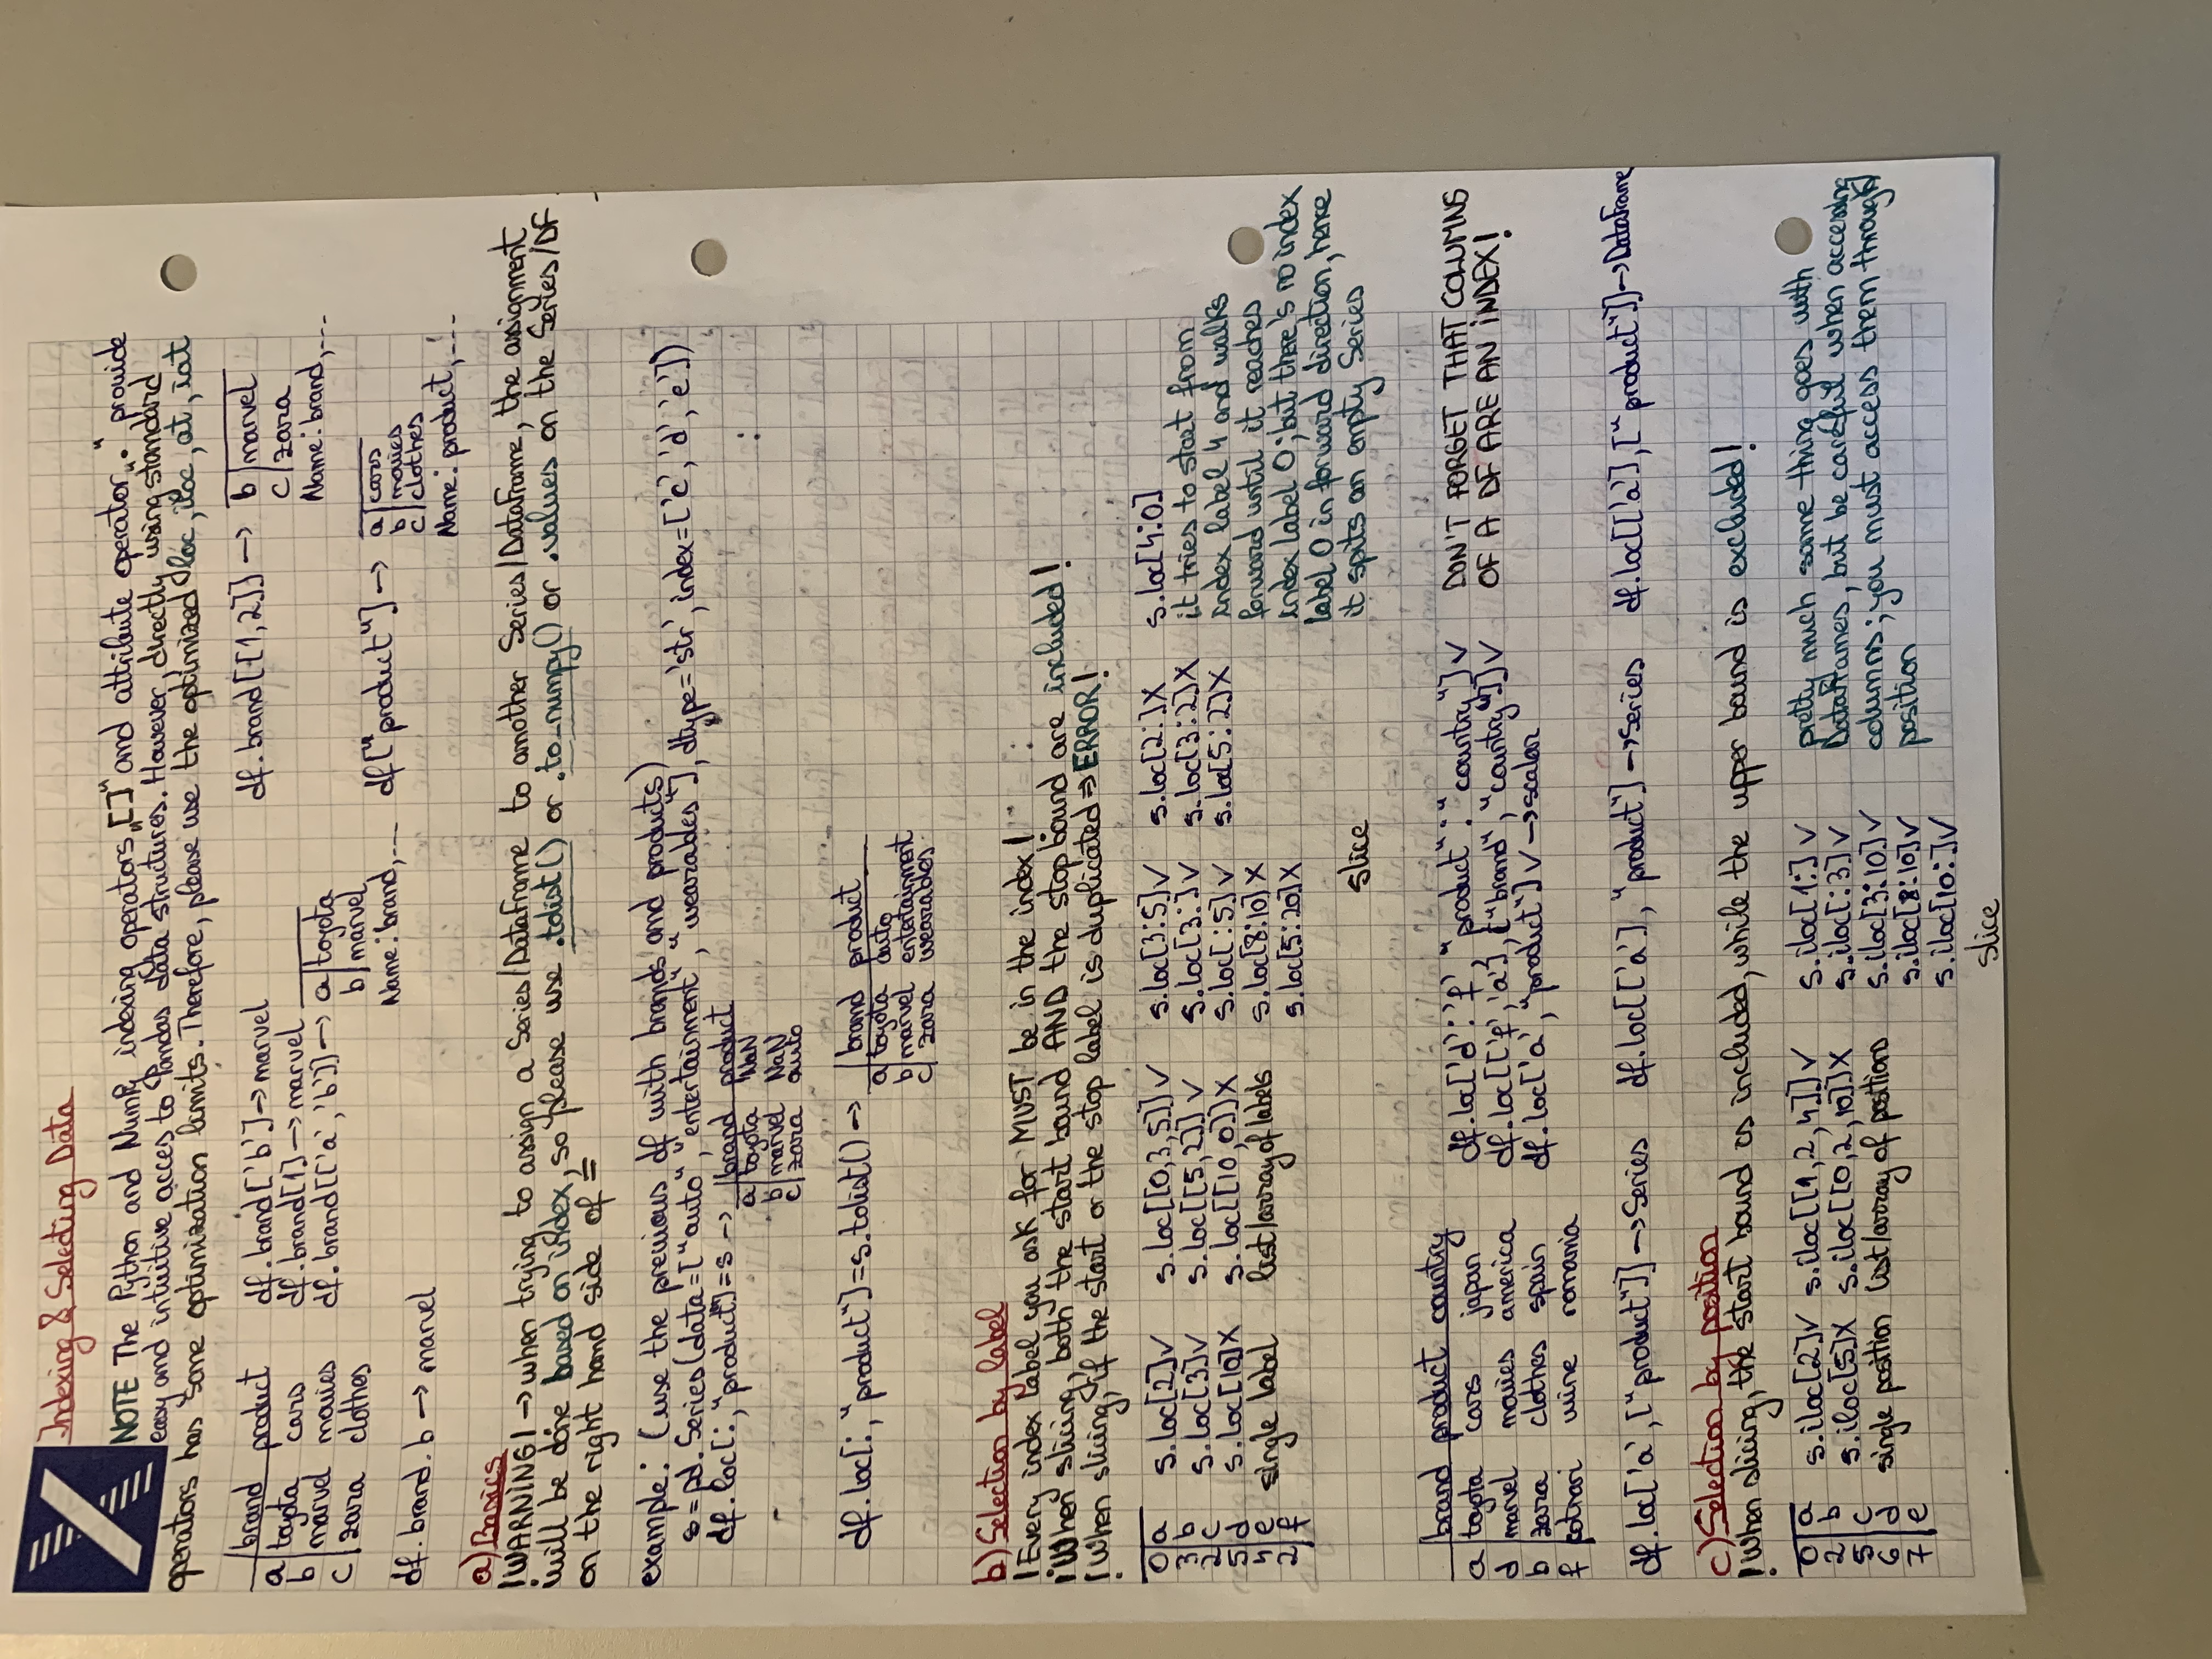 Indexing & Selecting Data
NOTE The Python and NumPy indexing operators „[]" and attribute operator „." provide
easy and intuitive acces to Pandas data structures. However, directly using standard
operators has some optimization limits. Therefore, please use the optimized loc, iloc, at, iat
brand product
a toyota cars
b marvel movies
c zara clothes
df.brand['b'] → marvel
df.brand[1] → marvel
df.brand[['a', 'b']] → a toyota
b marvel
Name: brand, ...
df.brand[[1,2]] → b marvel
c zara
Name: brand, ...
df.brand.b → marvel
df["product"] → a cars
b movies
c clothes
Name: product, ...
a) Basics
!WARNING! → when trying to assign a Series/DataFrame to another Series/DataFrame, the assignment
will be done based on index, so please use .tolist() or .to_numpy() or .values on the Series/DF
on the right hand side of =
example: (use the previous df with brands and products)
s = pd.Series(data=["auto", "entertainment", "wearables"], dtype='str', index=['c', 'd', 'e'])
df.loc[:, "product"]=s → brand product
a toyota NaN
b marvel NaN
c zara auto
df.loc[:, "product"]=s.tolist() → brand product
a toyota auto
b marvel entertainment
c zara wearables
b) Selection by label
! Every index label you ask for MUST be in the index!
! When slicing, both the start bound AND the stop bound are included!
! When slicing, if the start or the stop label is duplicated ⇒ ERROR!
0 a
3 b
2 c
5 d
4 e
2 f
s.loc[2]✓
s.loc[3]✓
s.loc[10]X
single label
s.loc[[0,3,5]]✓
s.loc[[5,2]]✓
s.loc[[10,0]]X
list/array of labels
s.loc[3:5]✓ s.loc[2:]X
s.loc[3:]✓ s.loc[3:2]X
s.loc[:5]✓ s.loc[5:2]X
s.loc[8:10]X
s.loc[5:20]X
slice
s.loc[4:0]
it tries to start from
index label 4 and walks
forward until it reaches
index label 0; but there's no index
label 0 in forward direction, hence
it spits an empty Series
brand product country
a toyota cars japan
d marvel movies america
b zara clothes spain
f cotnari wine romania
df.loc['d':'f', "product":"country"]✓
df.loc[['f','a'], ["brand", "country"]]✓
df.loc['a', "product"]✓ → scalar
DON'T FORGET THAT COLUMNS
OF A DF ARE AN INDEX!
df.loc['a', ["product"]] → Series df.loc[['a'], "product"] → Series df.loc[['a'], ["product"]] → DataFrame
c) Selection by position
! When slicing, the start bound is included, while the upper bound is excluded!
0 a
2 b
5 c
6 d
7 e
s.iloc[2]✓
s.iloc[5]X
single position
s.iloc[[1,2,4]]✓
s.iloc[[0,2,10]]X
list/array of positions
s.iloc[1:]✓
s.iloc[:3]✓
s.iloc[3:10]✓
s.iloc[8:10]✓
s.iloc[10:]✓
slice
pretty much same thing goes with
DataFrames, but be careful when accessing
columns; you must access them through
position